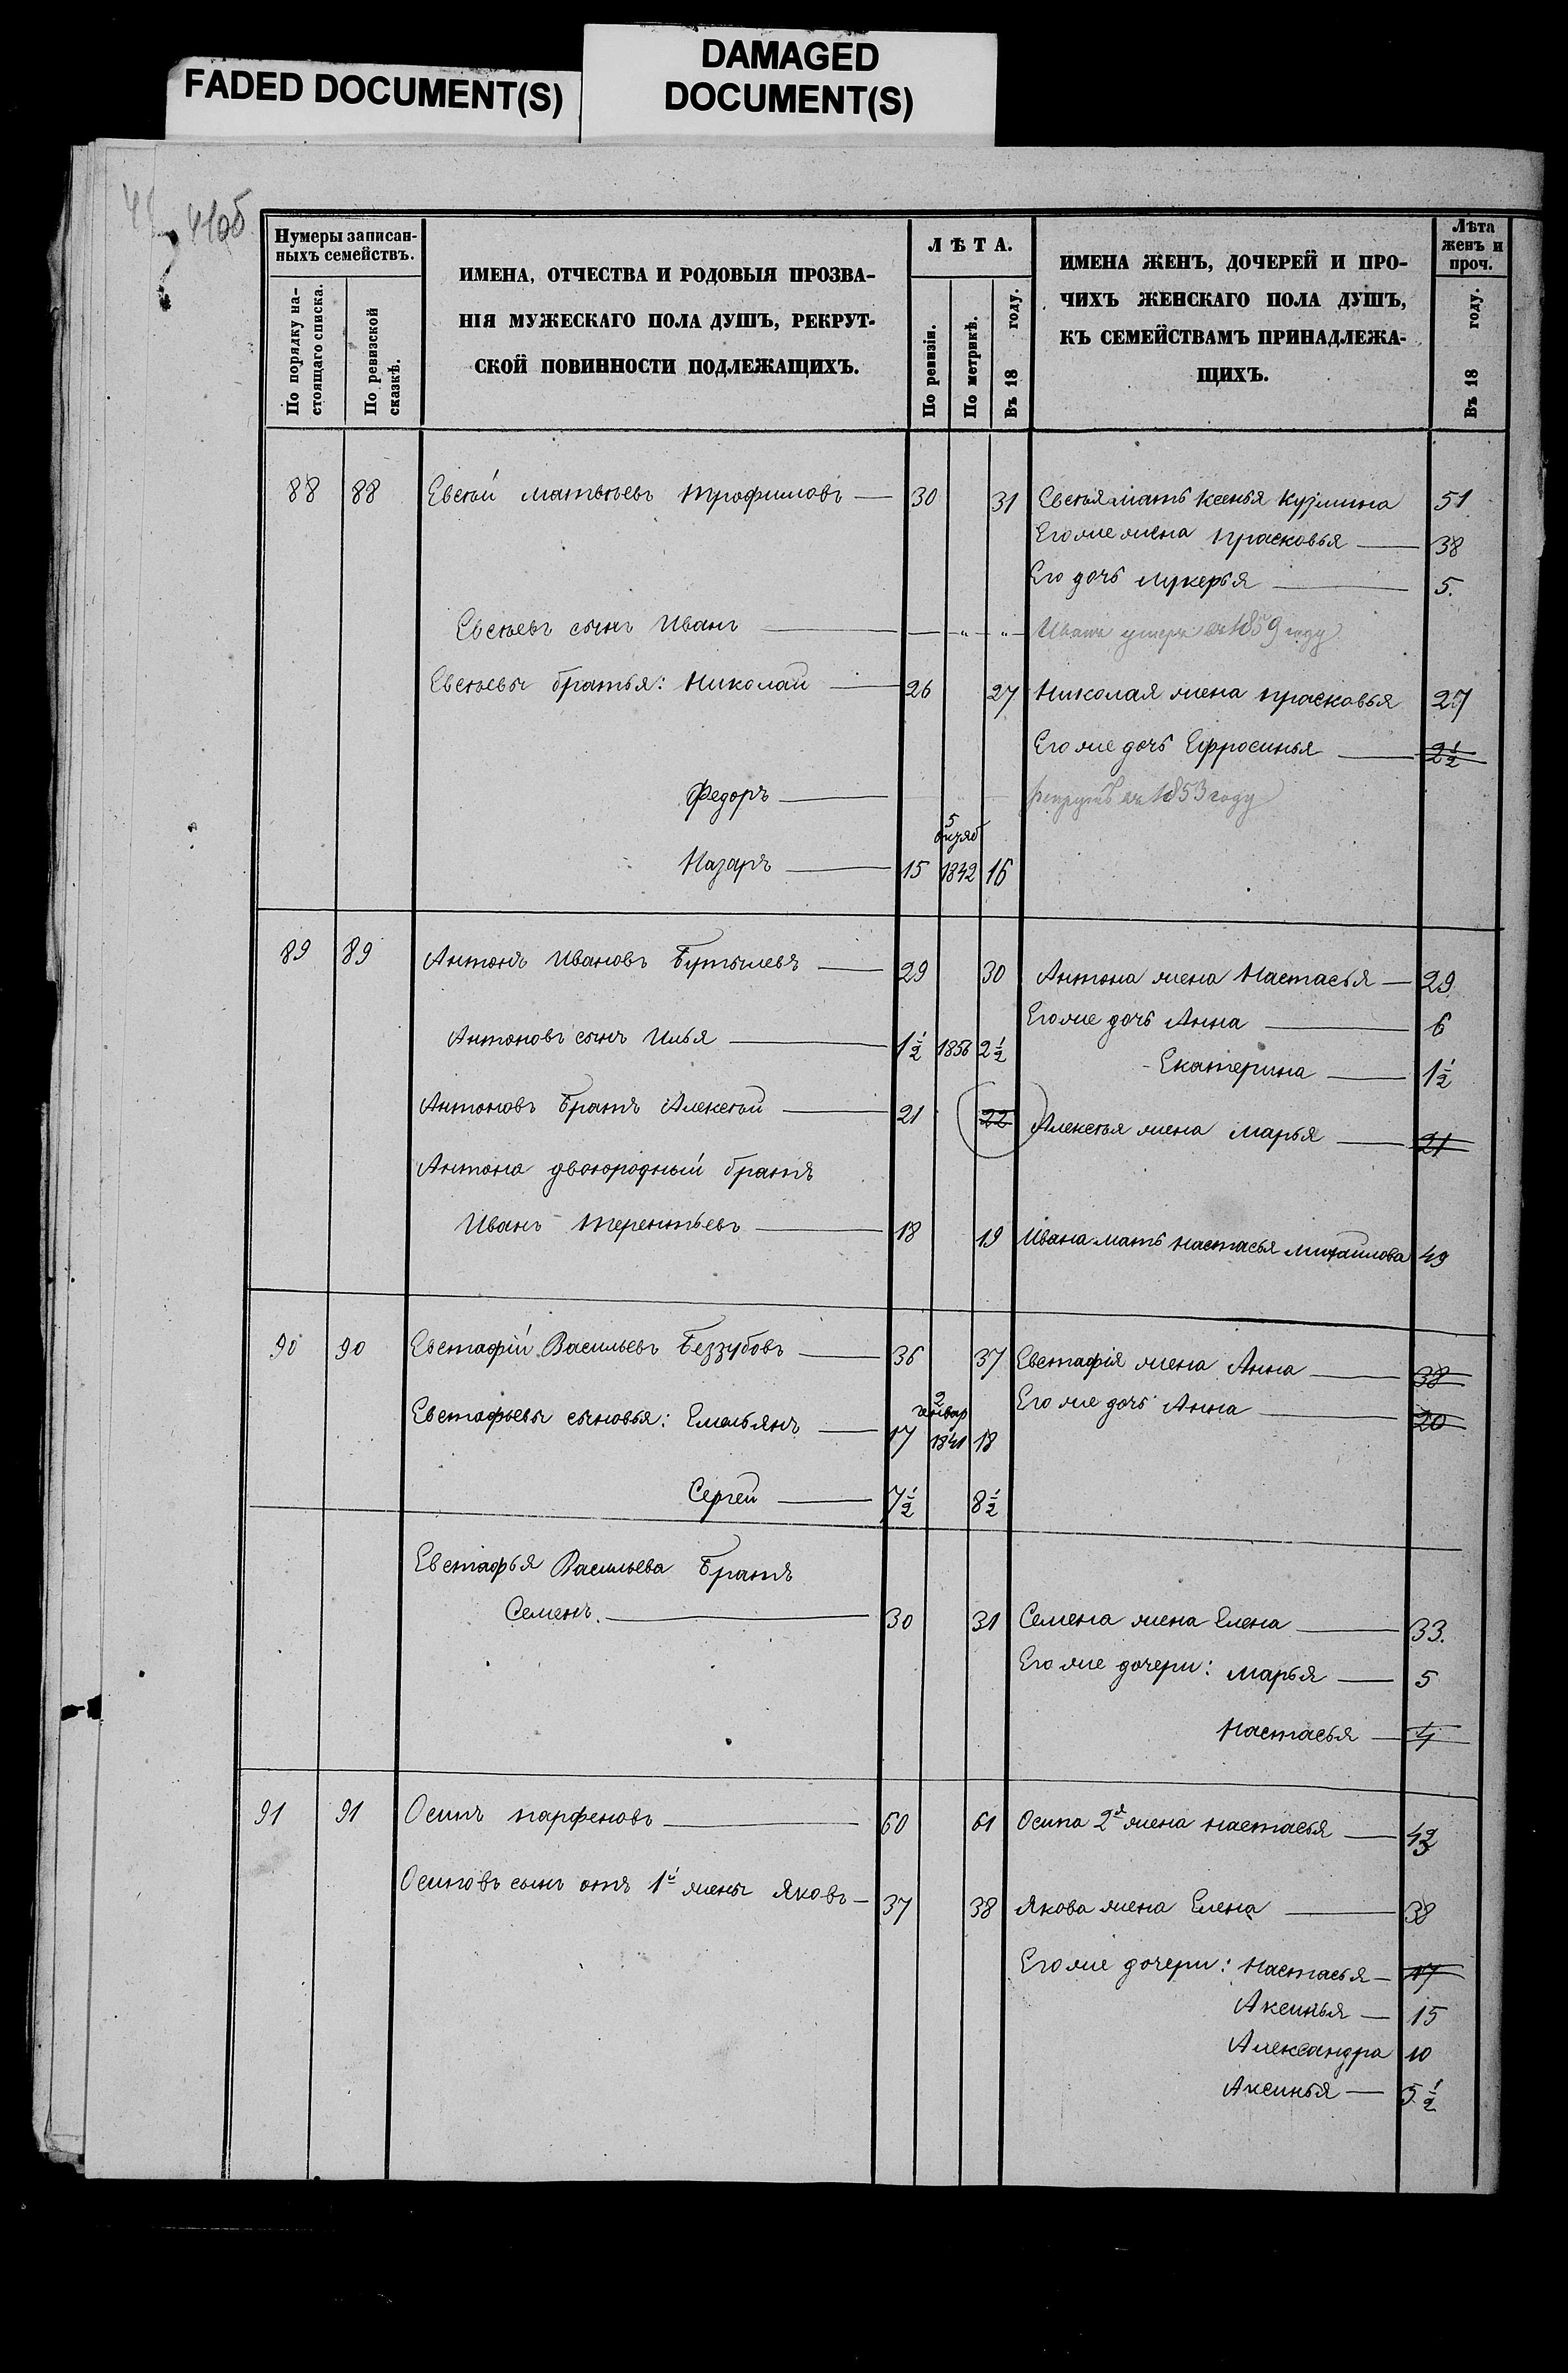 FADED DOCUMENT(S)
DAMAGED
DOCUMENT(S)
41об
Нумеры записан-
ныхъ семействъ.
По порядку на-
стоящаго списка.
По ревизской
сказкѣ.
ИМЕНА, ОТЧЕСТВА И РОДОВЫЯ ПРОЗВА-
НІЯ МУЖЕСКАГО ПОЛА ДУШЪ, РЕКРУТ-
СКОЙ ПОВИННОСТИ ПОДЛЕЖАЩИХЪ.
ЛѢТА.
По ревизіи.
По метрикѣ.
Въ 18 году.
ИМЕНА ЖЕНЪ, ДОЧЕРЕЙ И ПРО-
ЧИХЪ ЖЕНСКАГО ПОЛА ДУШЪ,
КЪ СЕМЕЙСТВАМЪ ПРИНАДЛЕЖА-
ЩИХЪ.
Лѣта
женъ и
проч.
Въ 18 году.
88 88 Евсѣй Матвѣевъ Трофимовъ — 30 31 Евсѣя мать Ксенья Кузмина 51
Его же жена Прасковья — 38
Его дочь Лукерья — 5.
Евсѣевъ сынъ Иванъ — — „ — „ — Иванъ умеръ въ 1859 году
Евсѣевы братья: Николай — 26 27 Николая жена Прасковья 27
Его же дочь Ефросинья — 2½
Федоръ — Рекрутъ въ 1853 году
5
октяб
Назаръ — 15 1842 16
89 89 Антонъ Ивановъ Бутылевъ — 29 30 Антона жена Настасья — 29
Его же дочь Анна — 6
Антоновъ сынъ Илья — 1½ 1856 2½
Екатерина — 1½
Антоновъ братъ Алексѣй — 21 22 Алексѣя жена Марья — 21
Антона двоюродный братъ
Иванъ Терентьевъ — 18 19 Ивана мать Настасья Михайлова 49
90 90 Евстафій Васильевъ Беззубовъ — 36 37 Евстафія жена Анна — 38
Его же дочь Анна — 20
9
январ
Евстафьевы сыновья: Емельянъ — 17 1841 18
Сергей — 7½ 8½
Евстафья Васильева братъ
Семенъ. — 30 31 Семена жена Елена — 33.
Его же дочери: Марья — 5
Настасья — 4
91 91 Осипъ Парфеновъ — 60 61 Осипа 2я жена Настасья — 43
Осиповъ сынъ отъ 1й жены Яковъ — 37 38 Якова жена Елена — 38
Его же дочери: Настасья — 17
Аксинья — 15
Александра 10
Аксинья — 5½